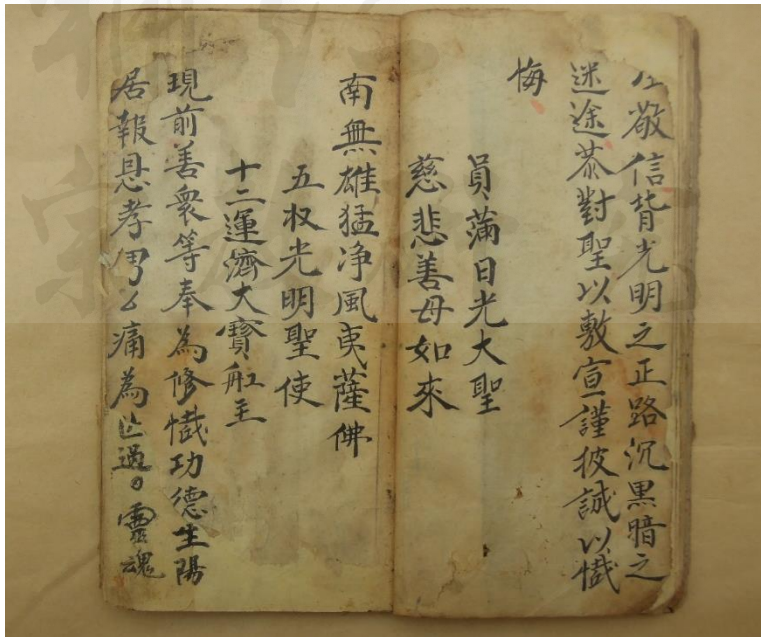 敬信背光明之正路沉黑暗之
迷途恭對聖以敷宣謹彼誠以懺
悔
員蒲日光大聖
慈悲善母如來
南無雄猛净風夷薩佛
五收光明聖使
十二運濟大寶舡主
現前善衆等奉為修懺功德生陽
居報恩孝男厶痛為亡過厶靈魂